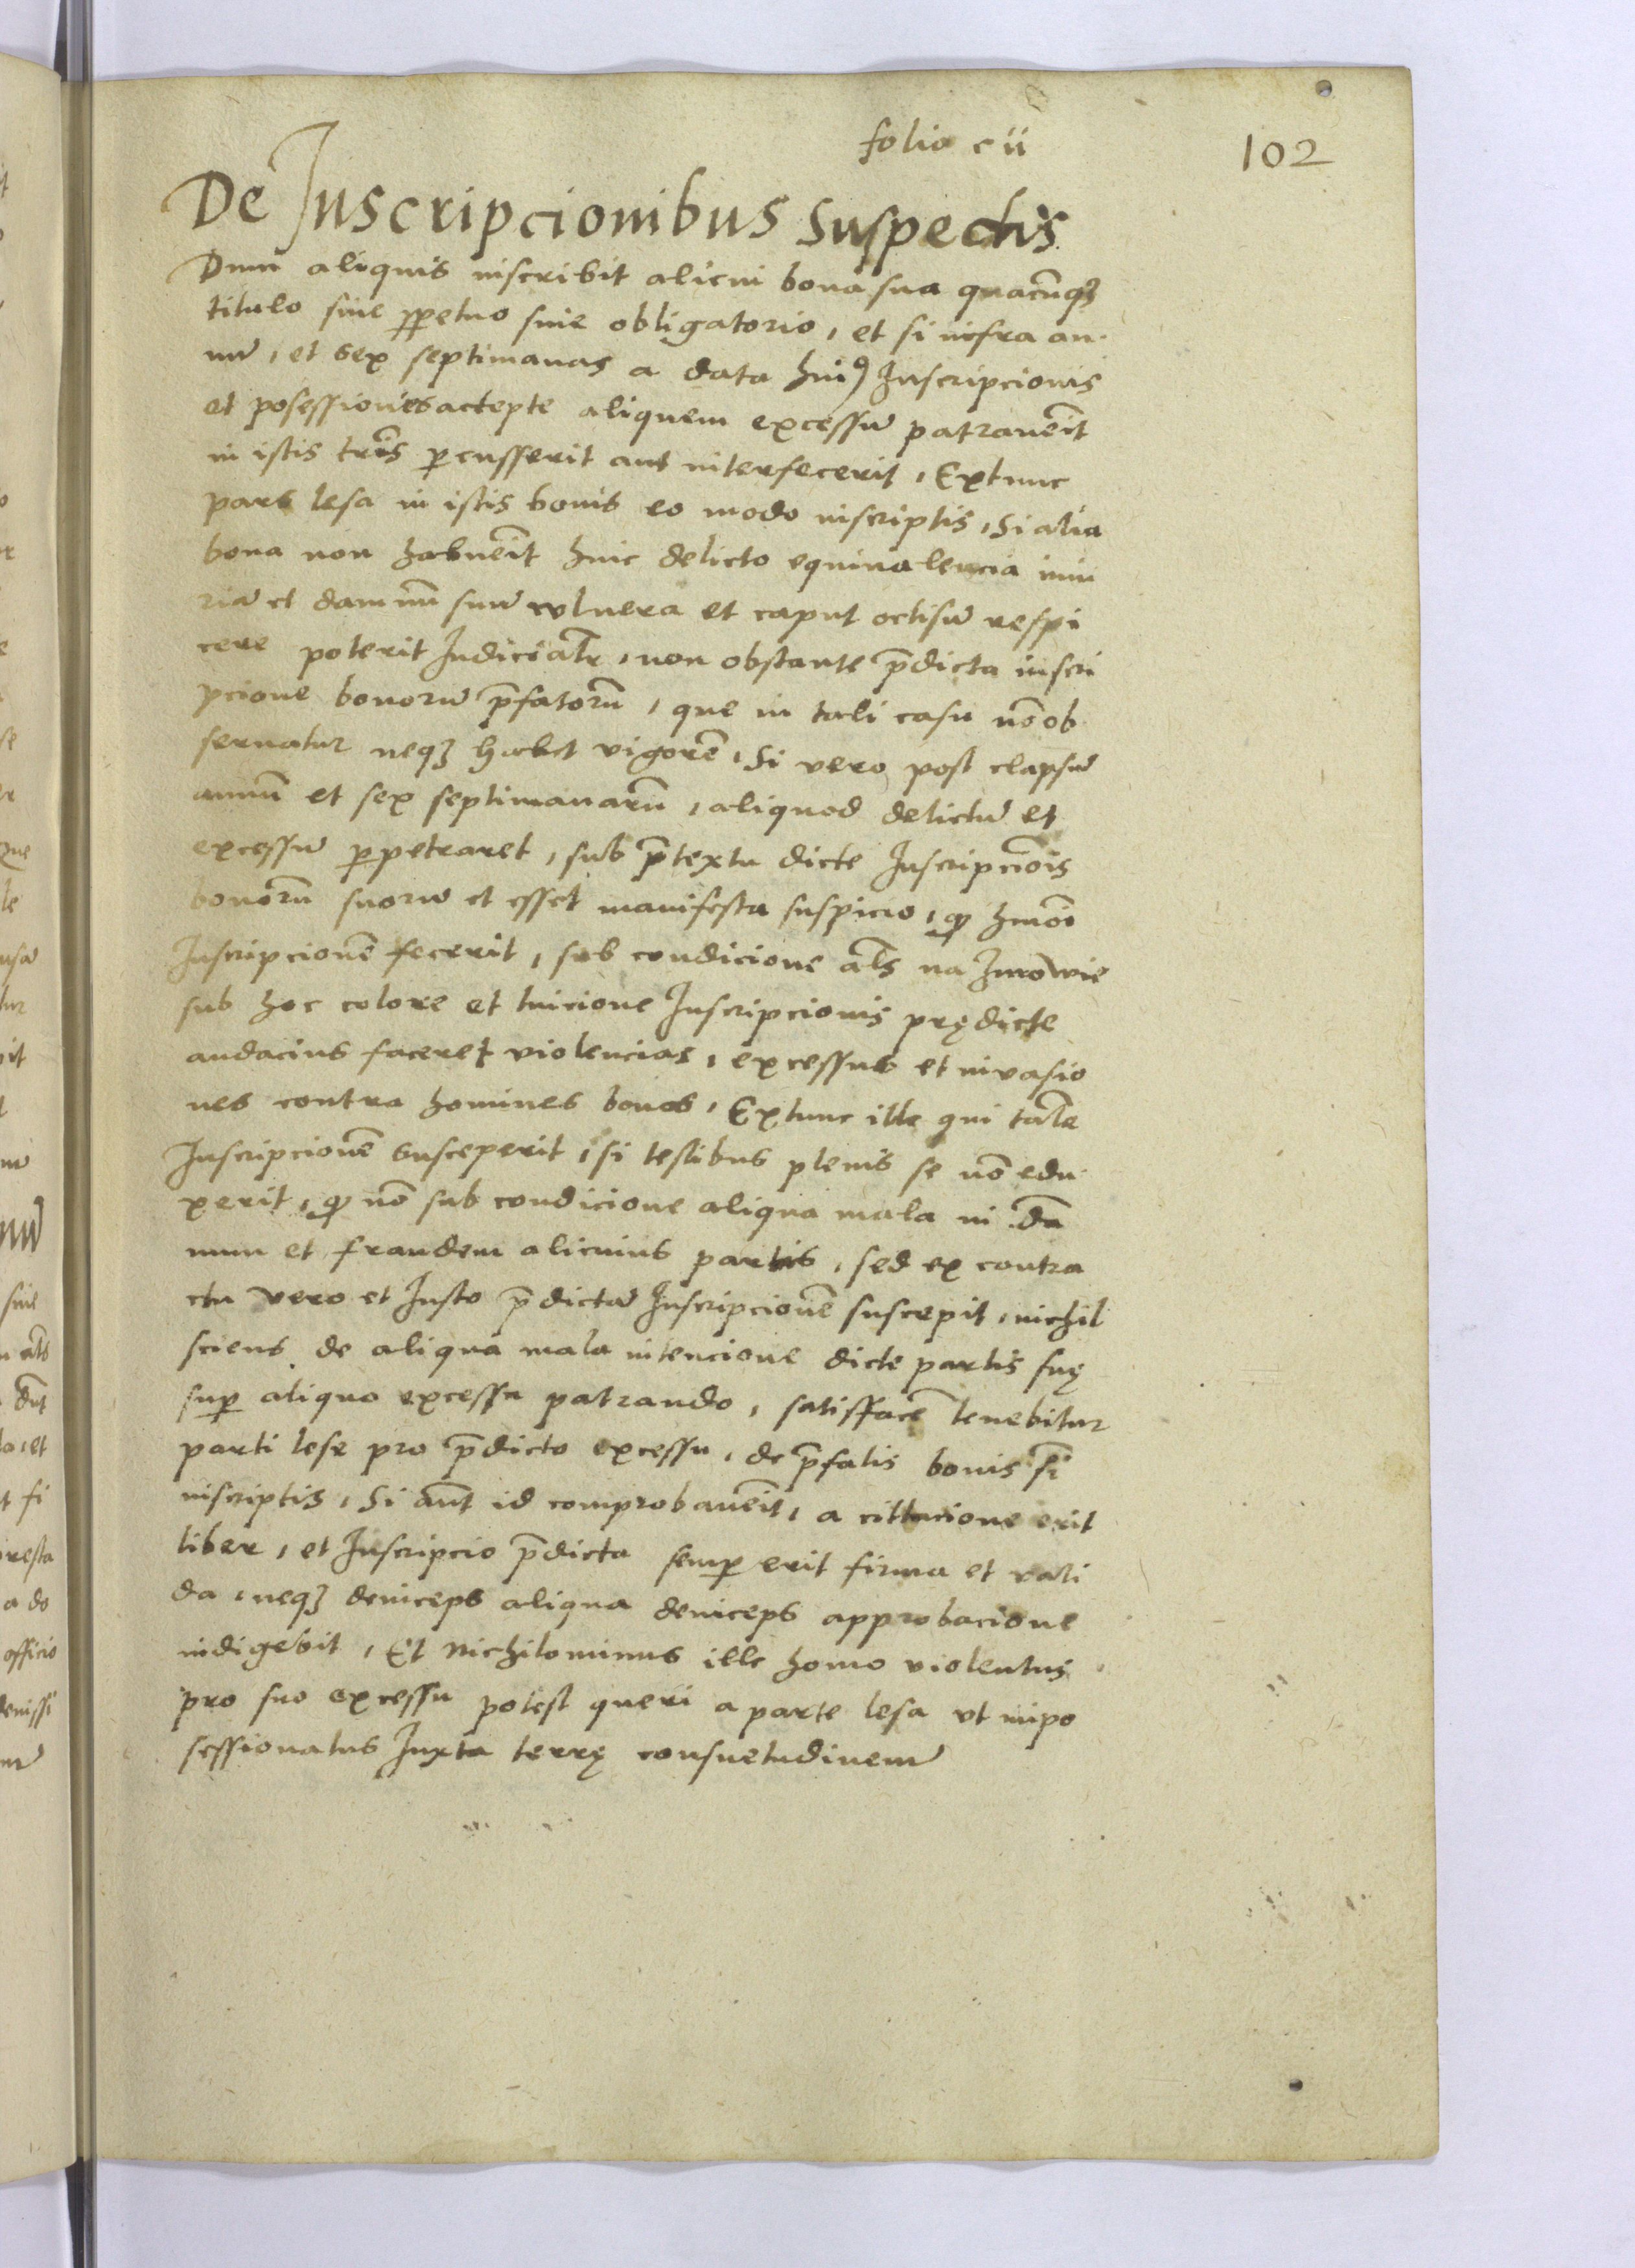 folio cii
102
De Inscripcionibus suspectis
Dum aliquis inscribit alicui bona sua quacūqꝫ
titulo siue ꝑpetuo siue obligatorio, et si infra an-
nū, et sex septimanas a data huiꝰ Inscripcionis
et posessiones accepte aliquem excessū patrauerit
in istis tr̄is ꝑcusserit aut interfecerit, Extunc
pars lesa in istis bonis eo modo inscriptis, Si alia
bona non habuerīt huic delicto equiualencia iniu
riā et damnū suū vulnera et caput occisū respi
cere poterit Iudicialr̄, non obstante p̄dicta inscri
pcione bonorū p̄fatorū, que in tali casu nō ob
seruatur neqꝫ habet vigorē, Si vero post elapsū
annū et sex septimanarū, aliquod delictū et
excessū ꝑpetraret, sub p̄textu dicte Inscripciōis
bonorū suorū et esset manifesta suspicio, ꝙ hmōi
Inscripcionē fecerit, sub condicione al̄s na zmowie
sub hoc colore et tuicione Inscripcionis prędicte
audacius faceret violencias, excessus et inuasio
nes contra homines bonos, Extunc ille qui talē
Inscripcionē susceperit, si testibus plenis se nō edu
xerit, ꝙ nō sub condicione aliqua mala in dā
num et fraudem alicuius partis, sed ex contra
ctu vero et Iusto p̄dictā Inscripcionē suscepit, nichil
sciens de aliqua mala intencione dicte partis suę
suꝑ aliquo excessu patrando, satisfacē tenebitur
parti lese pro p̄dicto excessu, de p̄fatis bonis sī
inscriptis, Si aūt id comprobauerīt, a cittacione erit
liber, et Inscripcio p̄dicta semꝑ erit firma et vali
da, neqꝫ deinceps aliqua deinceps approbacione
indigebit, Et nichilominus ille homo violentus
pro suo excessu potest queri a parte lesa vt inpo
sessionatus Iuxta terrę consuetudinem